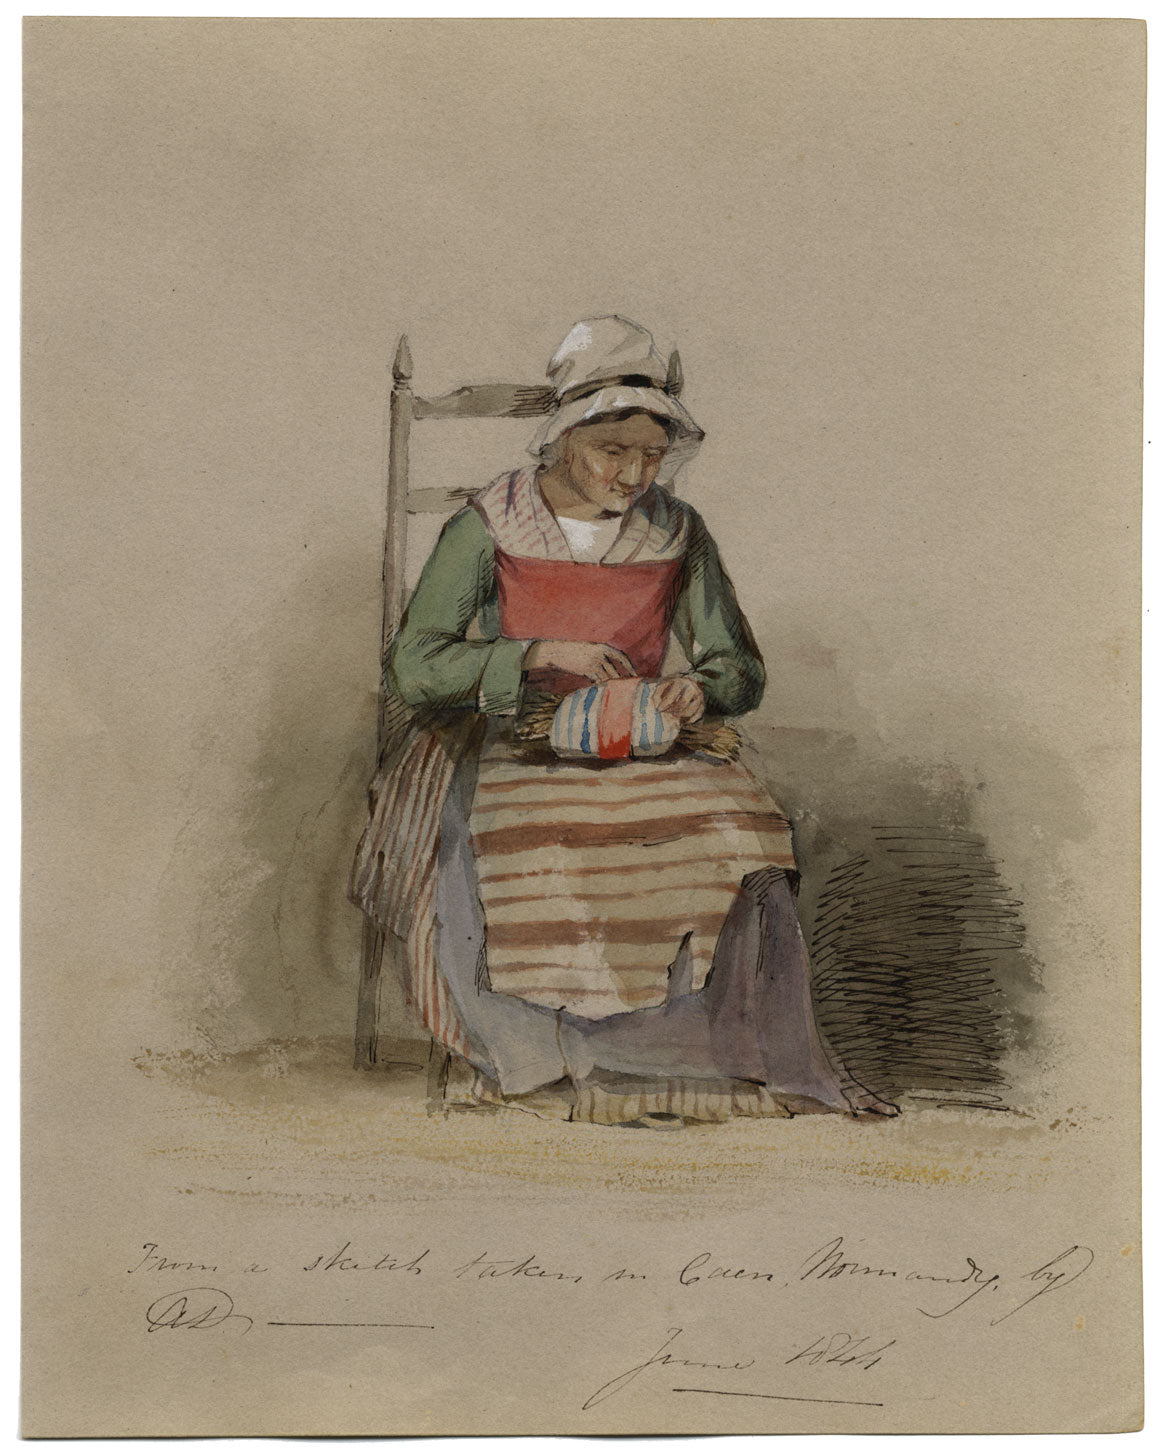 From a sketch taken in Caen, Normandy, by
AD.
June 1844